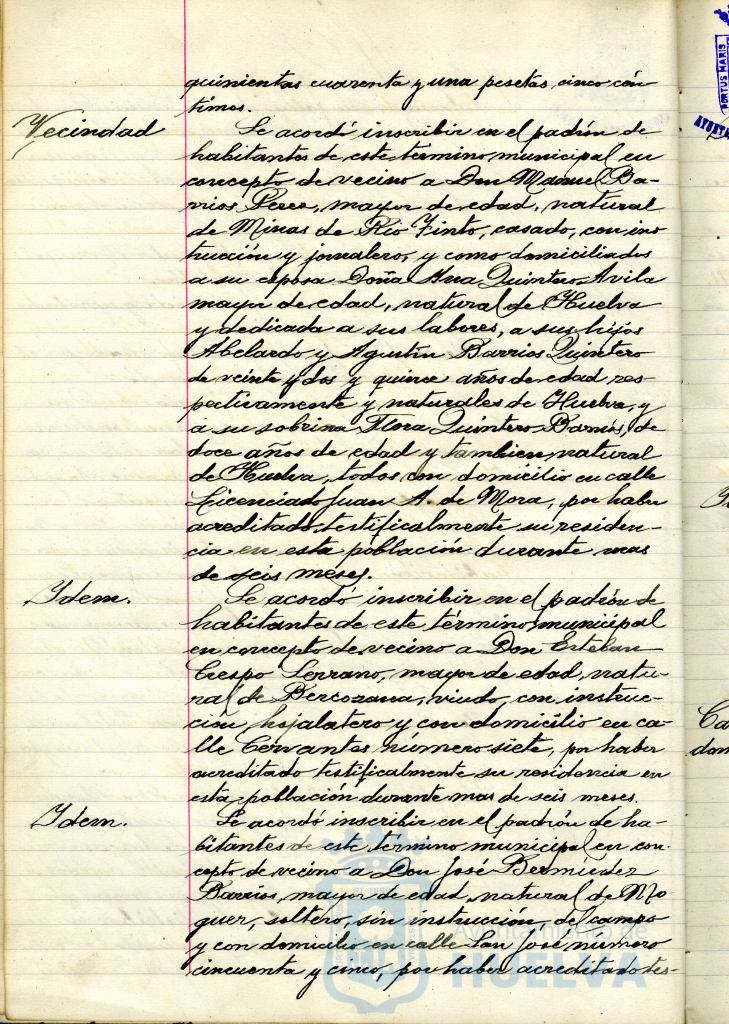 quinientas cuarenta y una pesetas, cinco cén-
timos.
Vecindad
Se acordó inscribir en el padrón de
habitantes de este termino municipal en
concepto de vecino a Don Manuel Ba-
rrios Perez, mayor de edad, natural
de Minas de Rio Tinto, casado, con ins
trucción y jornalero, y como domiciliados
a su esposa Doña Ana Quintero Avila
mayor de edad, natural de Huelva
y dedicada a sus labores, a sus hijos
Abelardo y Agustín Barrios Quintero
de veinte y dos y quince años de edad res-
pectivamente y naturales de Huelva, y
a su sobrina Flora Quintero Barrios, de
doce años de edad y tambien natural
de Huelva, todos con domicilio en calle
Licenciado Juan A. de Mora, por haber
acreditado testificalmente su residen-
cia en esta población durante mas
de seis meses.
Idem.
Se acordó inscribir en el padrón de
habitantes de este término municipal
en concepto de vecino a Don Esteban
Crespo Serrano, mayor de edad, natu-
ral de Bercozana, viudo, con instruc-
ción, hojalatero y con domicilio en ca-
lle Cervantes número siete, por haber
acreditado testificalmente su residencia en
esta población durante mas de seis meses.
Idem.
Se acordó inscribir en el padrón de ha-
bitantes de este término municipal en con
cepto de vecino a Don José Bermúdez
Barrios, mayor de edad, natural de Mo
guer, soltero, sin instrucción, de campo
y con domicilio en calle San José número
cincuenta y cinco, por haber acreditado tes-
Ayuntamiento de
HUELVA
PORTUS MARIS
AYUNT
Ca
dom